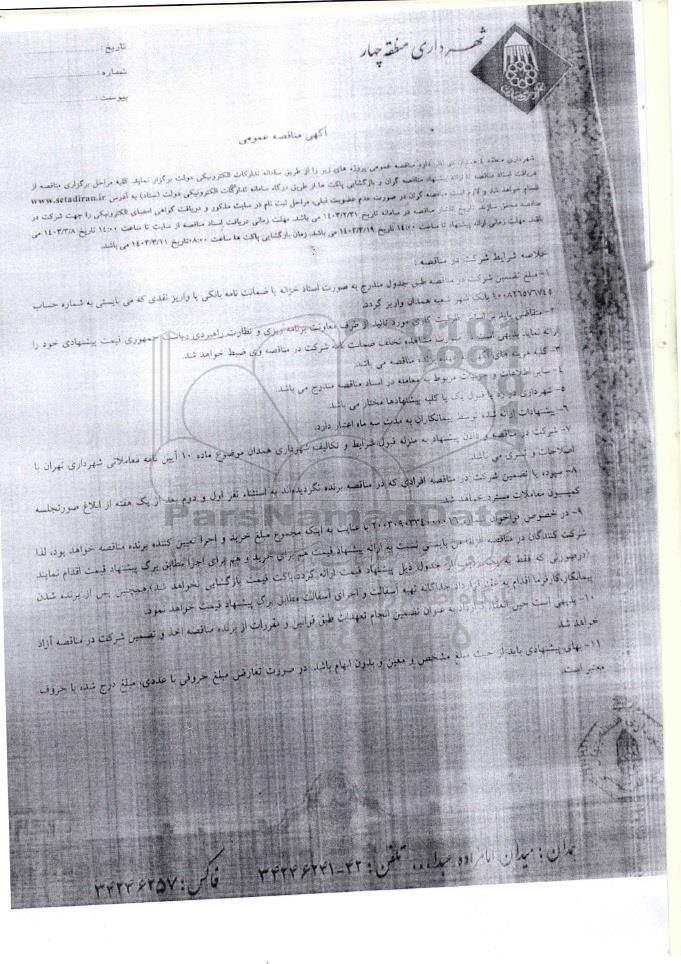 شهرداری منطقه چهار
تاریخ :
شماره :
پیوست :
آگهی مناقصه عمومی
شهرداری منطقه ۴ همدان در نظر دارد مناقصه عمومی پروژه های زیر را از طریق سامانه تدارکات الکترونیکی دولت برگزار نماید. کلیه مراحل برگزاری مناقصه از
دریافت اسناد مناقصه تا ارائه پیشنهاد مناقصه گران و بازگشایی پاکت ها از طریق درگاه سامانه تدارکات الکترونیکی دولت (ستاد) به آدرس www.setadiran.ir
انجام خواهد شد و لازم است مناقصه گران در صورت عدم عضویت قبلی، مراحل ثبت نام در سایت مذکور و دریافت گواهی امضای الکترونیکی را جهت شرکت در
مناقصه محقق سازند. تاریخ انتشار مناقصه در سامانه تاریخ ۱۴۰۳/۲/۳۱ می باشد. مهلت زمانی دریافت اسناد مناقصه از سایت تا ساعت ۱۴:۰۰ تاریخ ۱۴۰۳/۳/۸ می
باشد. مهلت زمانی ارائه پیشنهاد تا ساعت ۱۴:۰۰ تاریخ ۱۴۰۳/۳/۱۹ می باشد. زمان بازگشایی پاکت ها ساعت ۰۸:۰۰ تاریخ ۱۴۰۳/۳/۲۱ می باشد.
خلاصه شرایط شرکت در مناقصه :
۱- مبلغ تضمین شرکت در مناقصه طبق جدول مندرج به صورت اسناد خزانه یا ضمانت نامه بانکی یا واریز نقدی که می بایستی به شماره حساب
بانک شهر شعبه همدان واریز گردد.
۲- متقاضی باید بر اساس ظرفیت کاری مورد تائید از طرف معاونت برنامه ریزی و نظارت راهبردی ریاست جمهوری قیمت پیشنهادی خود را
ارائه نماید بدیهی است در صورت مشاهده تخلف ضمانت نامه شرکت در مناقصه وی ضبط خواهد شد.
۳- کلیه هزینه های آگهی برنده مناقصه می باشد.
۴- سایر اطلاعات و جزئیات مربوط به معامله در اسناد مناقصه مندرج می باشد.
۵- شهرداری در رد یا قبول یک یا کلیه پیشنهادها مختار می باشد.
۶- پیشنهادات ارائه شده توسط پیمانکاران به مدت سه ماه اعتبار دارد.
۷- شرکت در مناقصه و دادن پیشنهاد به منزله قبول شرایط و تکالیف شهرداری همدان موضوع ماده ۱۰ آیین نامه معاملاتی شهرداری تهران با
اصلاحات و تسری می باشد.
۸- سپرده یا تضمین شرکت در مناقصه افرادی که در مناقصه برنده نگردیده‌اند به استثناء نفر اول و دوم بعد از یک هفته از ابلاغ صورتجلسه
کمیسیون معاملات مسترد خواهد شد.
۹- در خصوص فراخوان با عنایت به اینکه مجموع مبلغ خرید و اجرا تعیین کننده برنده مناقصه خواهد بود، لذا
شرکت کنندگان در مناقصه الزاما می بایستی نسبت به ارائه پیشنهاد قیمت هم برای خرید و هم برای اجرا مطابق برگ پیشنهاد قیمت اقدام نمایند
(درصورتی که فقط به یک ردیف از جدول ذیل پیشنهاد قیمت ارائه گردد، پاکت قیمت بازگشایی نخواهد شد) همچنین پس از برنده شدن
پیمانکار، کارفرما اقدام به عقد قرارداد جداگانه تهیه آسفالت و اجرای آسفالت مطابق برگ پیشنهاد قیمت خواهد نمود.
۱۰- بدیهی است حین انعقاد قرارداد به عنوان تضمین انجام تعهدات طبق قوانین و مقررات از برنده مناقصه اخذ و تضمین شرکت در مناقصه آزاد
خواهد شد.
۱۱- بهای پیشنهادی باید از حیث مبلغ مشخص و معین و بدون ابهام باشد. در صورت تعارض مبلغ حروفی با عددی، مبلغ درج شده با حروف
معتبر است.
ParsNamadData
همدان : میدان امامزاده عبداله تلفن : ۴۲-۳۴۲۴۶۲۴۱ فاکس : ۳۴۲۴۶۲۵۷